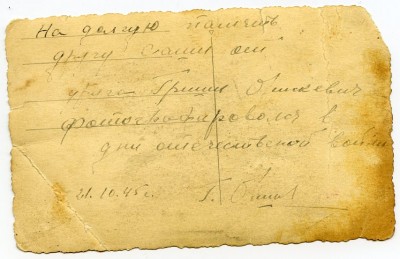 На долгую память
другу Саши от
друга Гриши
фотографировался в
дни отечественной войны
21.10.45 г. Г.